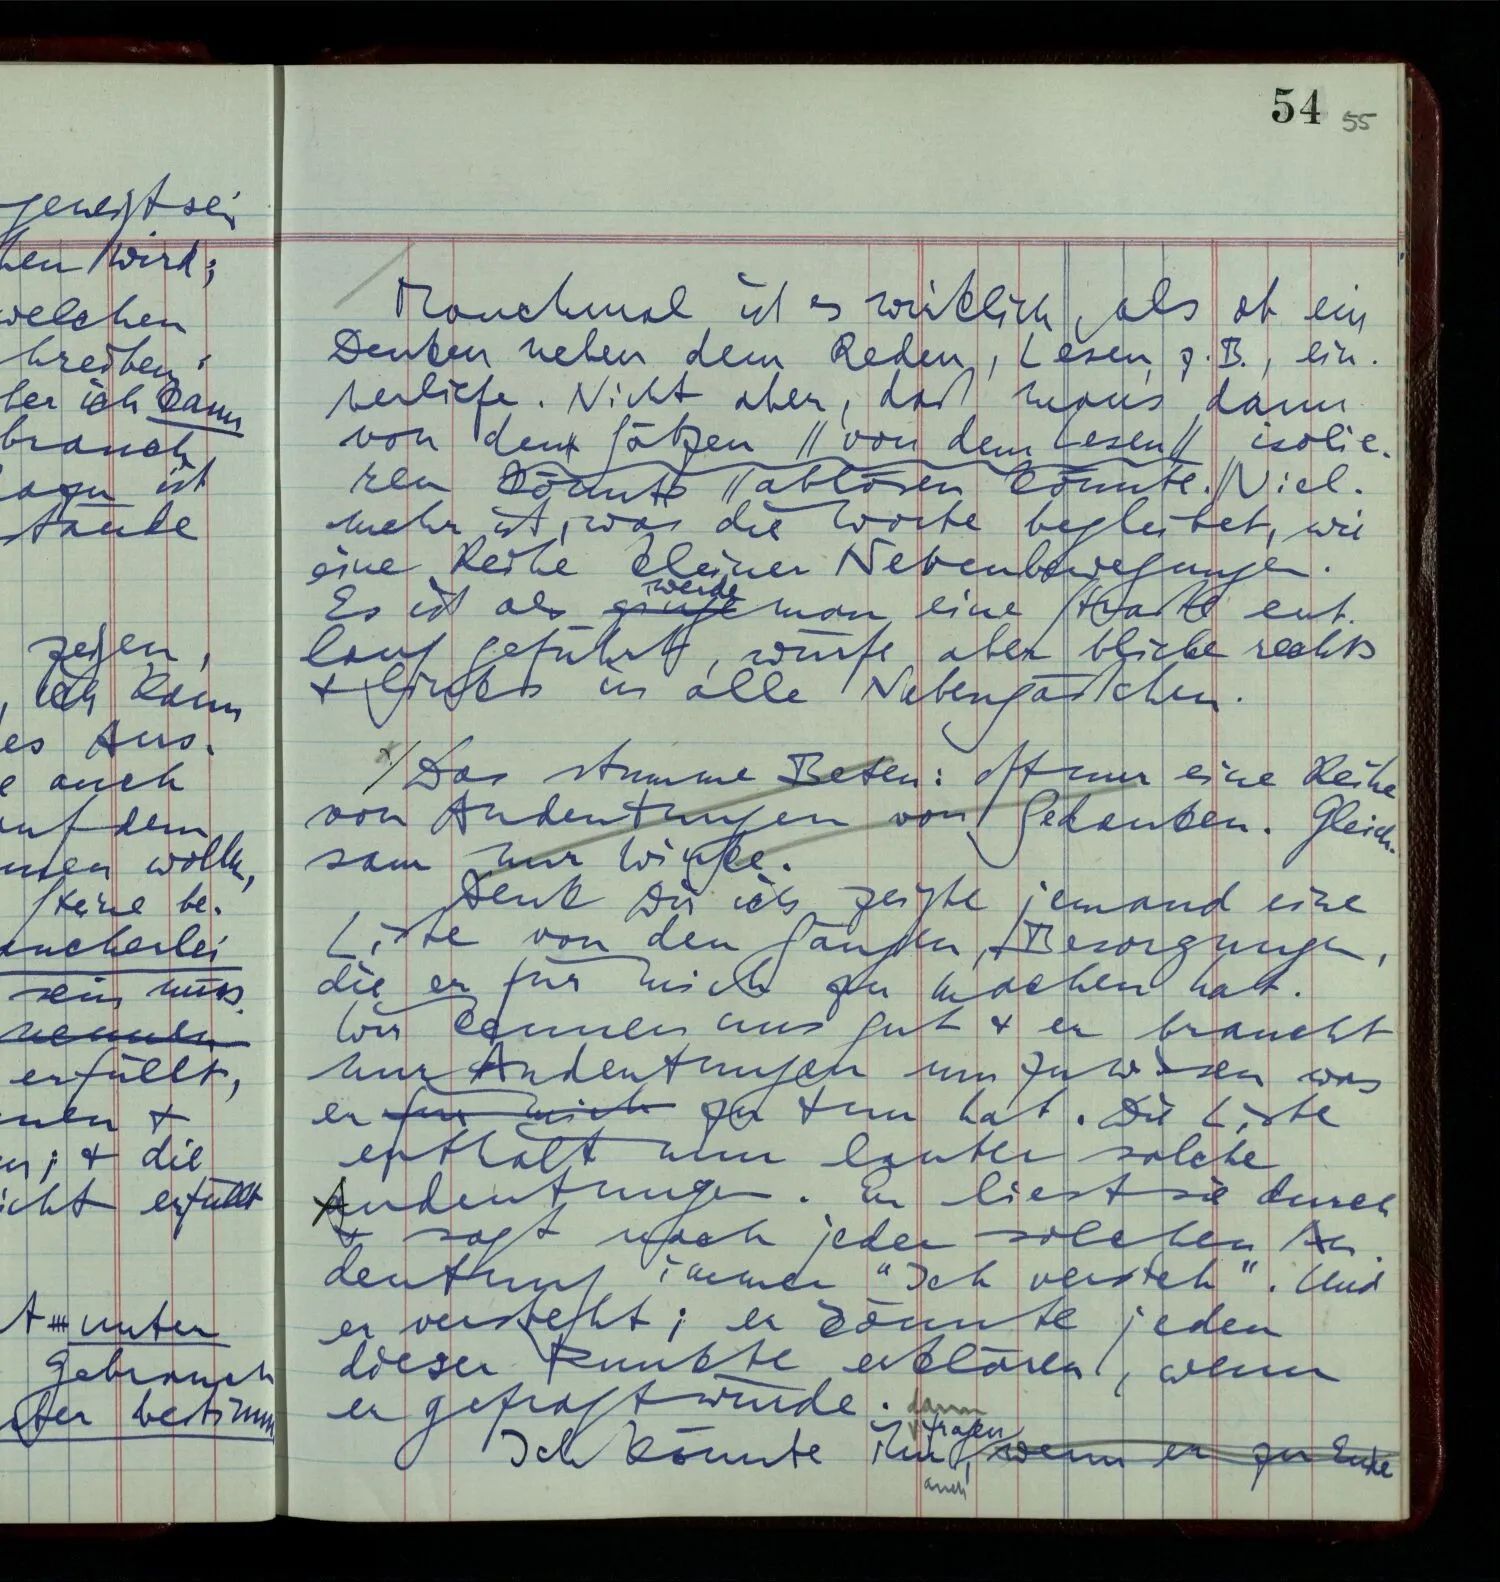 54 55
geneigt sei
hen wird;
welchen
hreiben;
ber ich kann
brauch
ist
stände
zeigen,
, ich kann
es Aus-
e auch
auf dem
men wolle,
Steine be-
ancherlei
sein muss.
nennen
erfüllt,
nen &
; & die
icht erfüllt
unter
Gebrauch
ber bestimm
Manchmal ist es wirklich, als ob ein
Denken neben dem Reden, Lesen, z.B., ein-
herliefe. Nicht aber, daß mans dann
von den Sätzen // von dem Lesen // isolie-
ren könnte // ablösen könnte. // Viel-
mehr ist, was die Worte begleitet, wie
eine Reihe kleiner Nebenbewegungen.
werde
Es ist als ginge man eine Straße ent-
lang geführt, würfe aber Blicke rechts
& links in alle Nebengäßchen.
Das stumme Beten: Oft nur eine Reihe
von Andeutungen von Gedanken. Gleich-
sam nur Winke.
Denk Dir ich zeigte jemand eine
Liste von den Gängen, Besorgungen,
die er für mich zu machen hat.
Wir kennen uns gut & er braucht
nur Andeutungen um zu wissen was
er für mich zu tun hat. Die Liste
enthält nun lauter solche
Andeutungen. Er liest sie durch
& sagt nach jeder solchen An-
deutung immer "Ich versteh". Und
er versteht; er könnte jeden
dieser Punkte erklären, wenn
er gefragt würde.
dann
fragen
Ich könnte ihn, wenn er zu Ende
auch